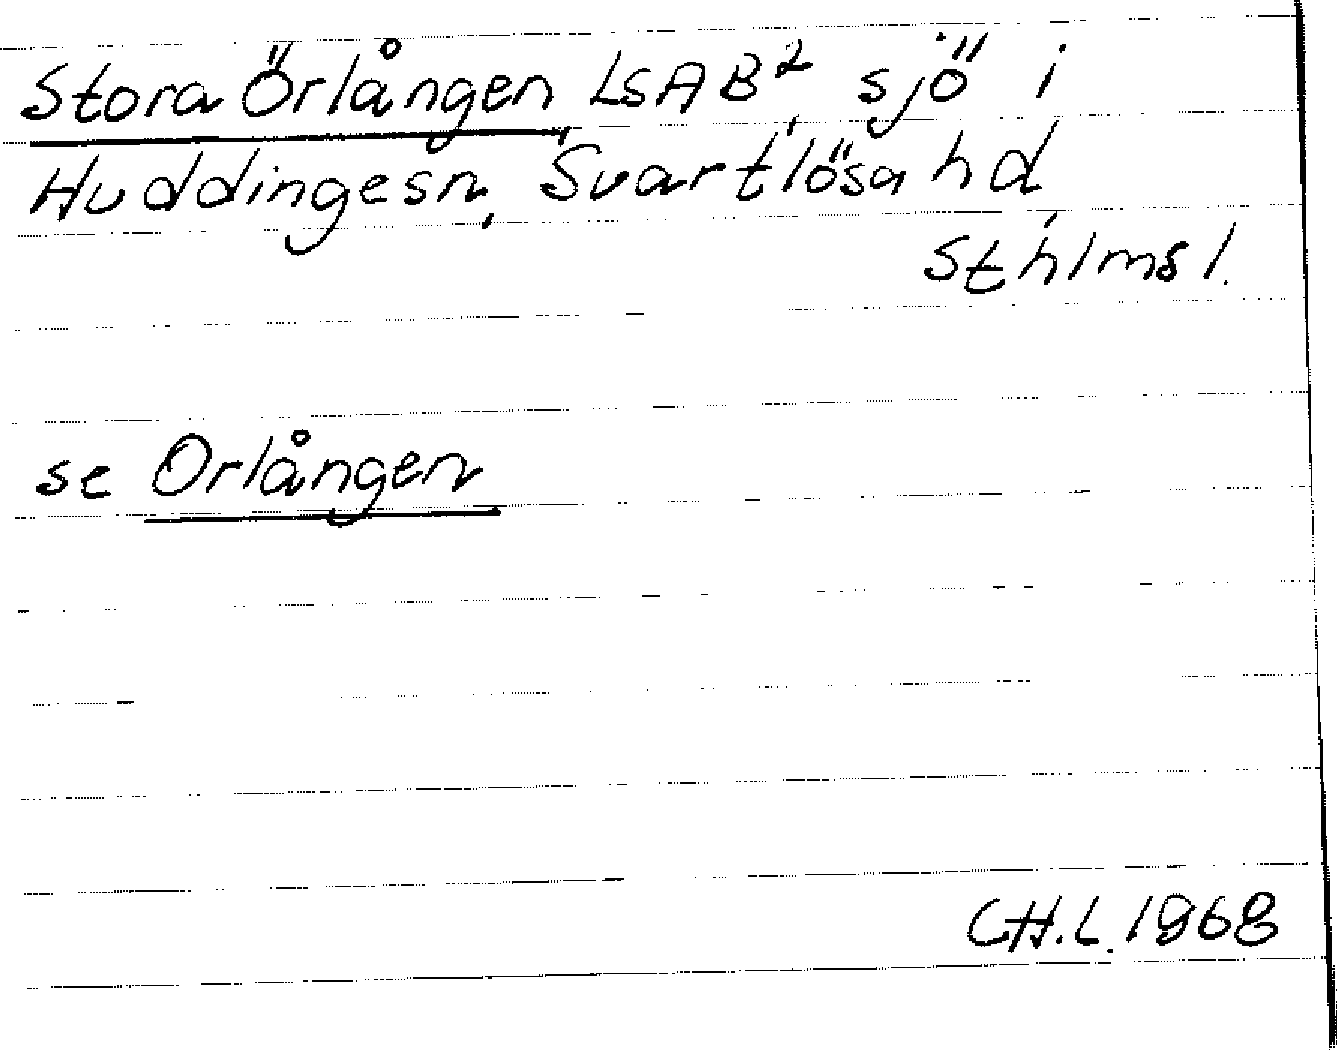 Stora Örlången LSAB², sjö i
Huddinge sn, Svartlösa hd,
Sthlms l.
se Orlången
CH.L. 1968